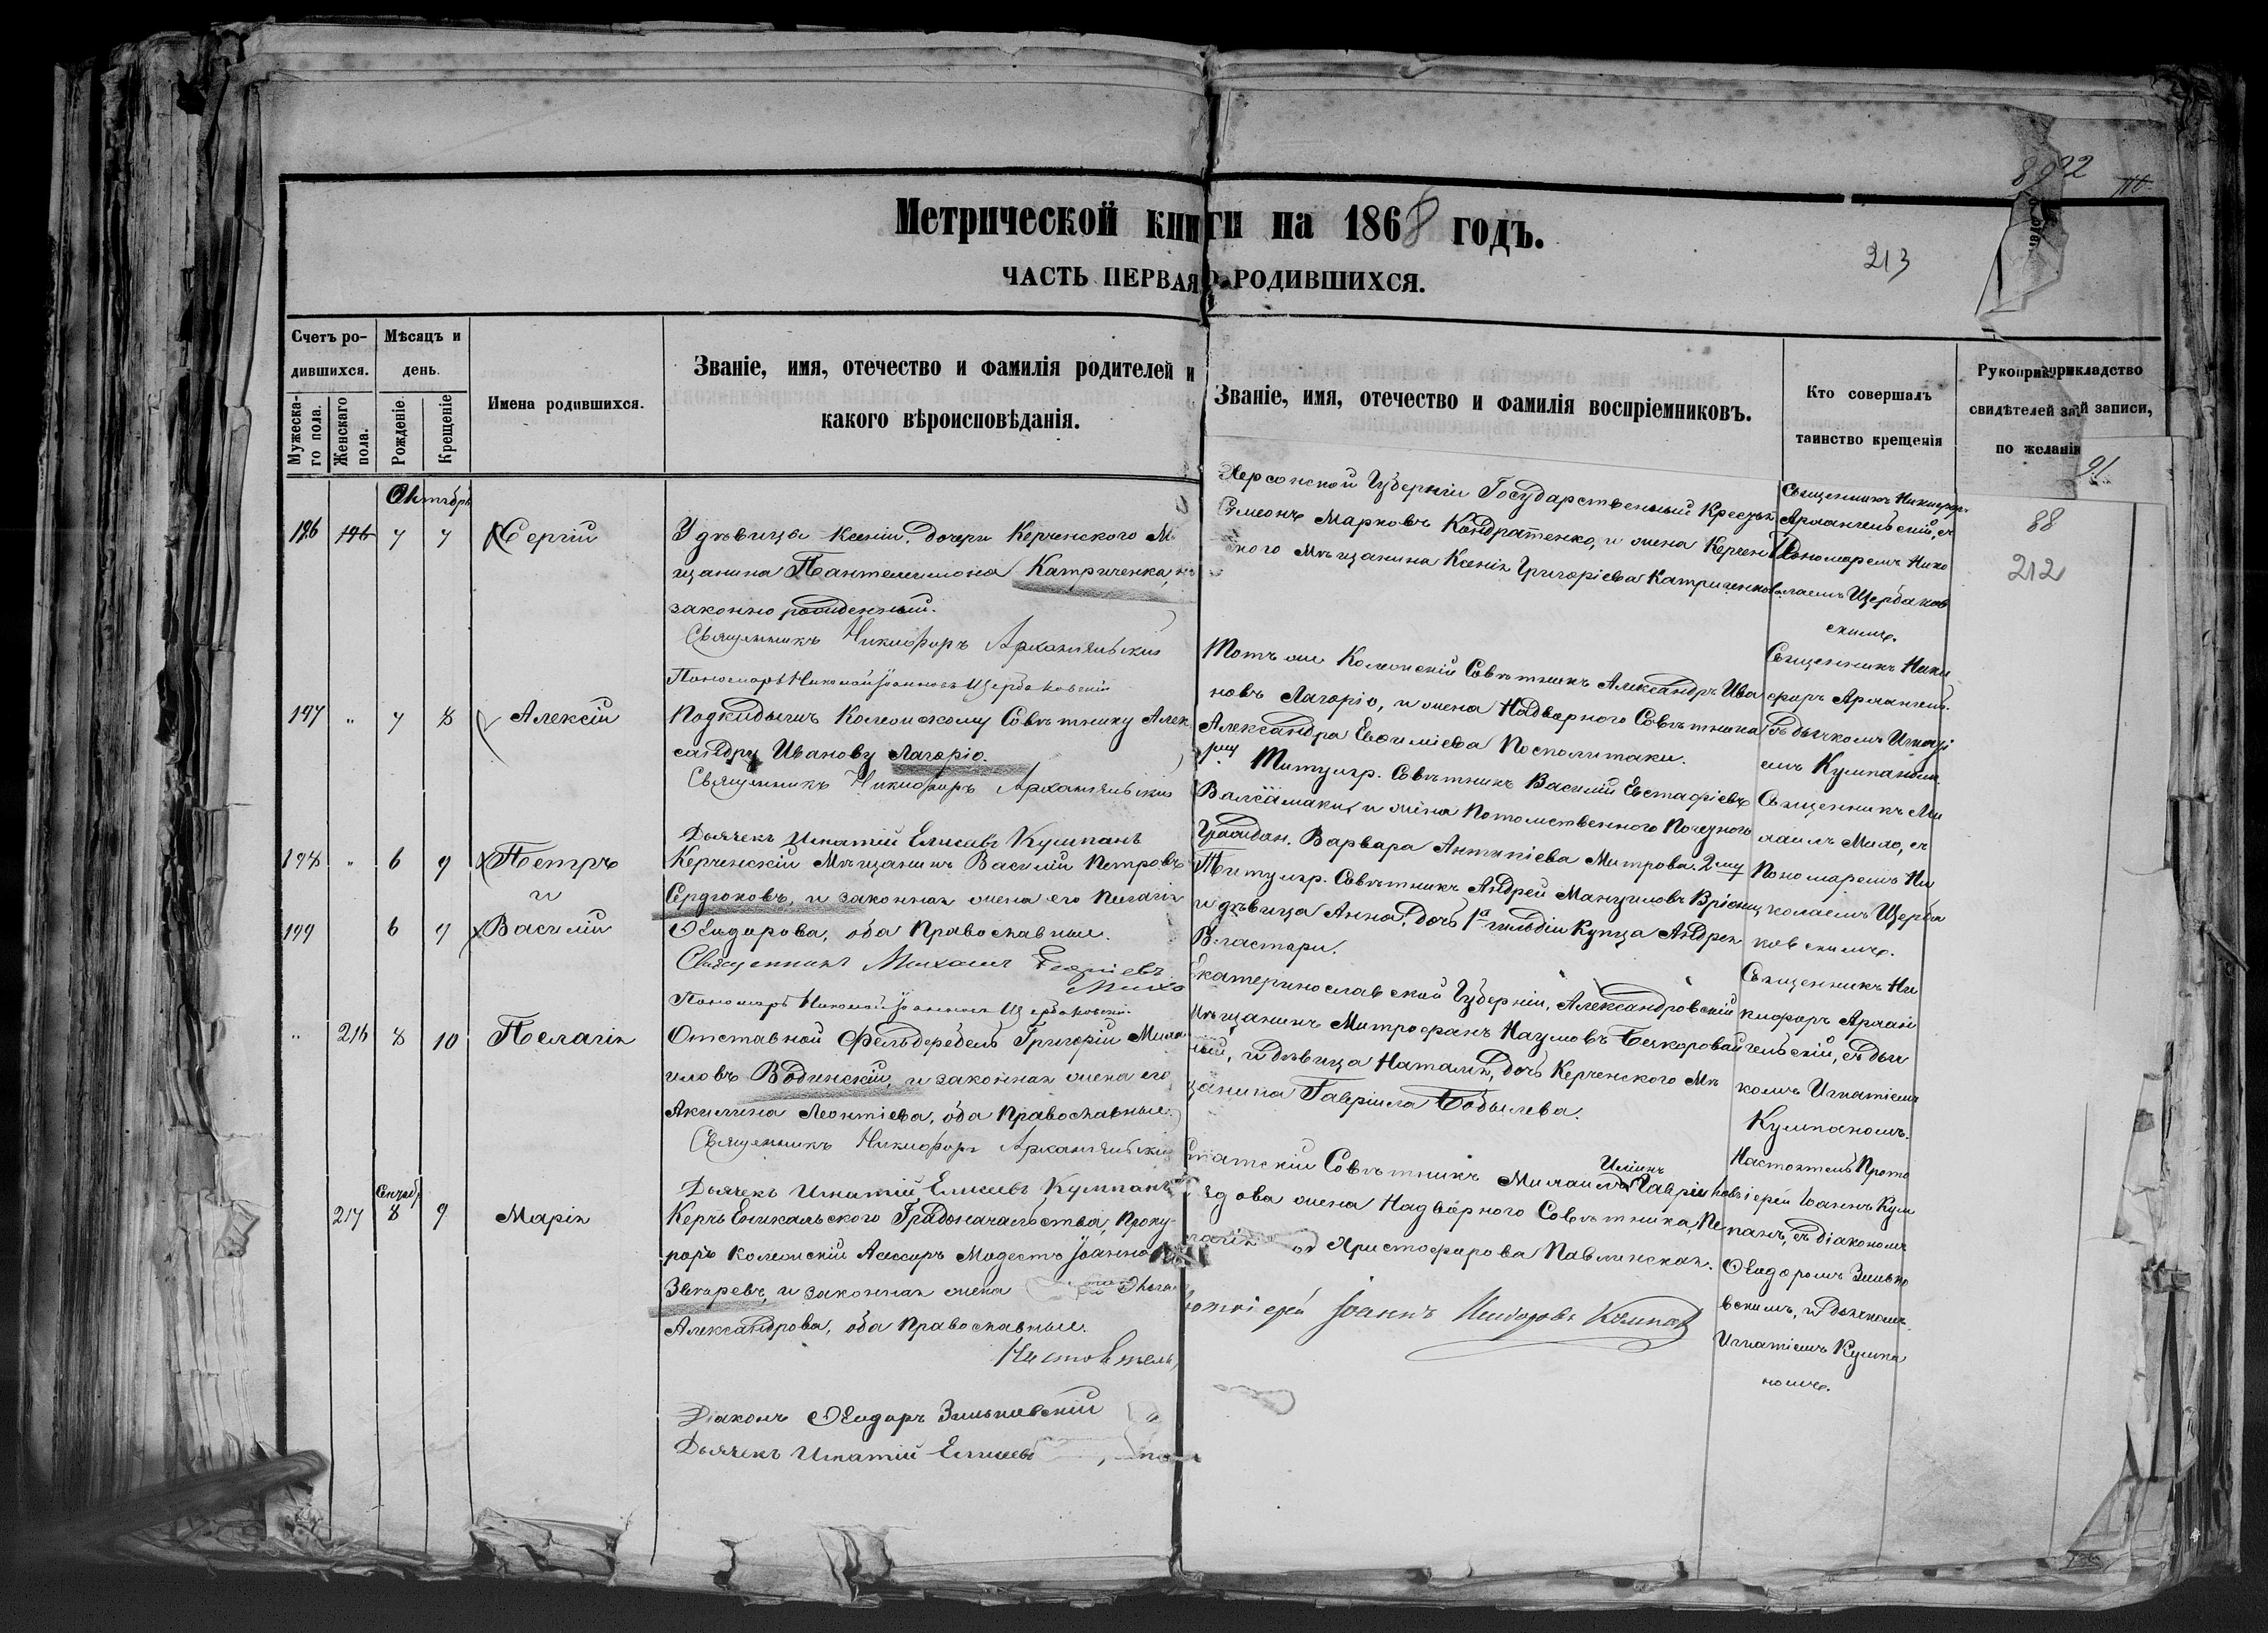 8922
213
Метрической книги на 1868 годъ.
ЧАСТЬ ПЕРВАЯ О РОДИВШИХСЯ.
Счетъ ро-
дившихся.
Мужеска-
го пола.
Женскаго
пола.
Мѣсяцъ и
день.
Рожденіе.
Крещеніе
Имена родившихся.
Званіе, имя, отечество и фамилія родителей и
какого вѣроисповѣданія.
Званіе, имя, отечество и фамилія воспріемниковъ.
Кто совершалъ
таинство крещенія
Рукоприкладство
свидѣтелей записи,
по желанію
91.
88
212
Октябрь
196 7 7 Сергій
У дѣвицы Ксеніи, дочери Керченского Мѣ
щанина Пантелеимона Катриченка, не
законно рожденный.
Священникъ Никифоръ Архангельскій
Пономарь Николай Іоанновъ Щербаковскій
Херсонской Губерніи Государственный Крестьян
Симеонъ Марковъ Кондратенко, и жена Керчен
ского Мѣщанина Ксенія Григоріева Катриченкова
Священникъ Никифоръ
Архангельскій, съ
Пономаремъ Нико
лаемъ Щербаков
скимъ.
197 " 7 8 Алексій
Подкидышъ Колежскому Совѣтнику Алек
сандру Иванову Лагоріо.
Священникъ Никифоръ Архангельскій
Дьячекъ Игнатій Елисеевъ Кумпанъ
Тотъ же Колежскій Совѣтникъ Александръ Ива
новъ Лагоріо, и жена Надворного Совѣтника
Александра Евфиміева Посполитаки.
Священникъ Ники
форъ Архангельс.
съ дьячкомъ Игнаті
емъ Кумпаномъ.
198 " 6 9 Петръ
и
199 6 9 Василій
Керченскій Мѣщанинъ Василій Петровъ
Сердюковъ, и законная жена его Пелагія
Ѳеодорова, оба Православные.
Священникъ Михаилъ Георгіевъ
Михо
Пономарь Николай Іоанновъ Щербаковскій
Титуляр. Совѣтникъ Василій Евстафіевъ
Валсамаки, и жена Потомственного Почетного
Граждан. Варвара Антипіева Митрова. 2му
Титуляр. Совѣтникъ Андрей Мануиловъ Вріони,
и дѣвица Анна, дочь 1й гильдіи Купца Андрея
Властари.
Священникъ Ми
хаилъ Михо, съ
Пономаремъ Ни
колаемъ Щерба
ковскимъ.
" 216 8 10 Пелагія
Отставной Фельдфебель Григорій Миха
иловъ Водинскій, и законная жена его
Акилина Леонтіева, оба Православные.
Священникъ Никифоръ Архангельскій
Дьячекъ Игнатій Елисеевъ Кумпанъ
Екатеринославской Губерніи, Александровскій
Мѣщанинъ Митрофанъ Наумовъ Безкоровай
ный, и дѣвица Наталія, дочь Керченского Мѣ
щанина Гавріила Бобылева.
Священникъ Ни
кифоръ Архан
гельскій, съ дьяч
комъ Игнатіемъ
Кумпаномъ.
Сентяб.
217 8 9 Марія
Керчь Еникальского Градоначальства, Проку-
роръ Колежскій Асессоръ Модестъ Іоанновъ
Звѣгаревъ, и законная жена
Александрова, оба Православные.
Настоятель,
Статскій Совѣтникъ Михаилъ Гавріиловъ
Илiинъ
вдова жена Надворного Совѣтника, Пе
лагія Христофорова Павлинская.
Протоіерей Іоаннъ Кумпанъ
Настоятель Прото
іерей Іоаннъ Кум
панъ, съ діакономъ
Ѳеодоромъ Зинько
вскимъ, и дьячкомъ
Игнатіемъ Кумпа
номъ.
Діаконъ Ѳеодоръ Зиньковскій
Дьячекъ Игнатій Елисеевъ